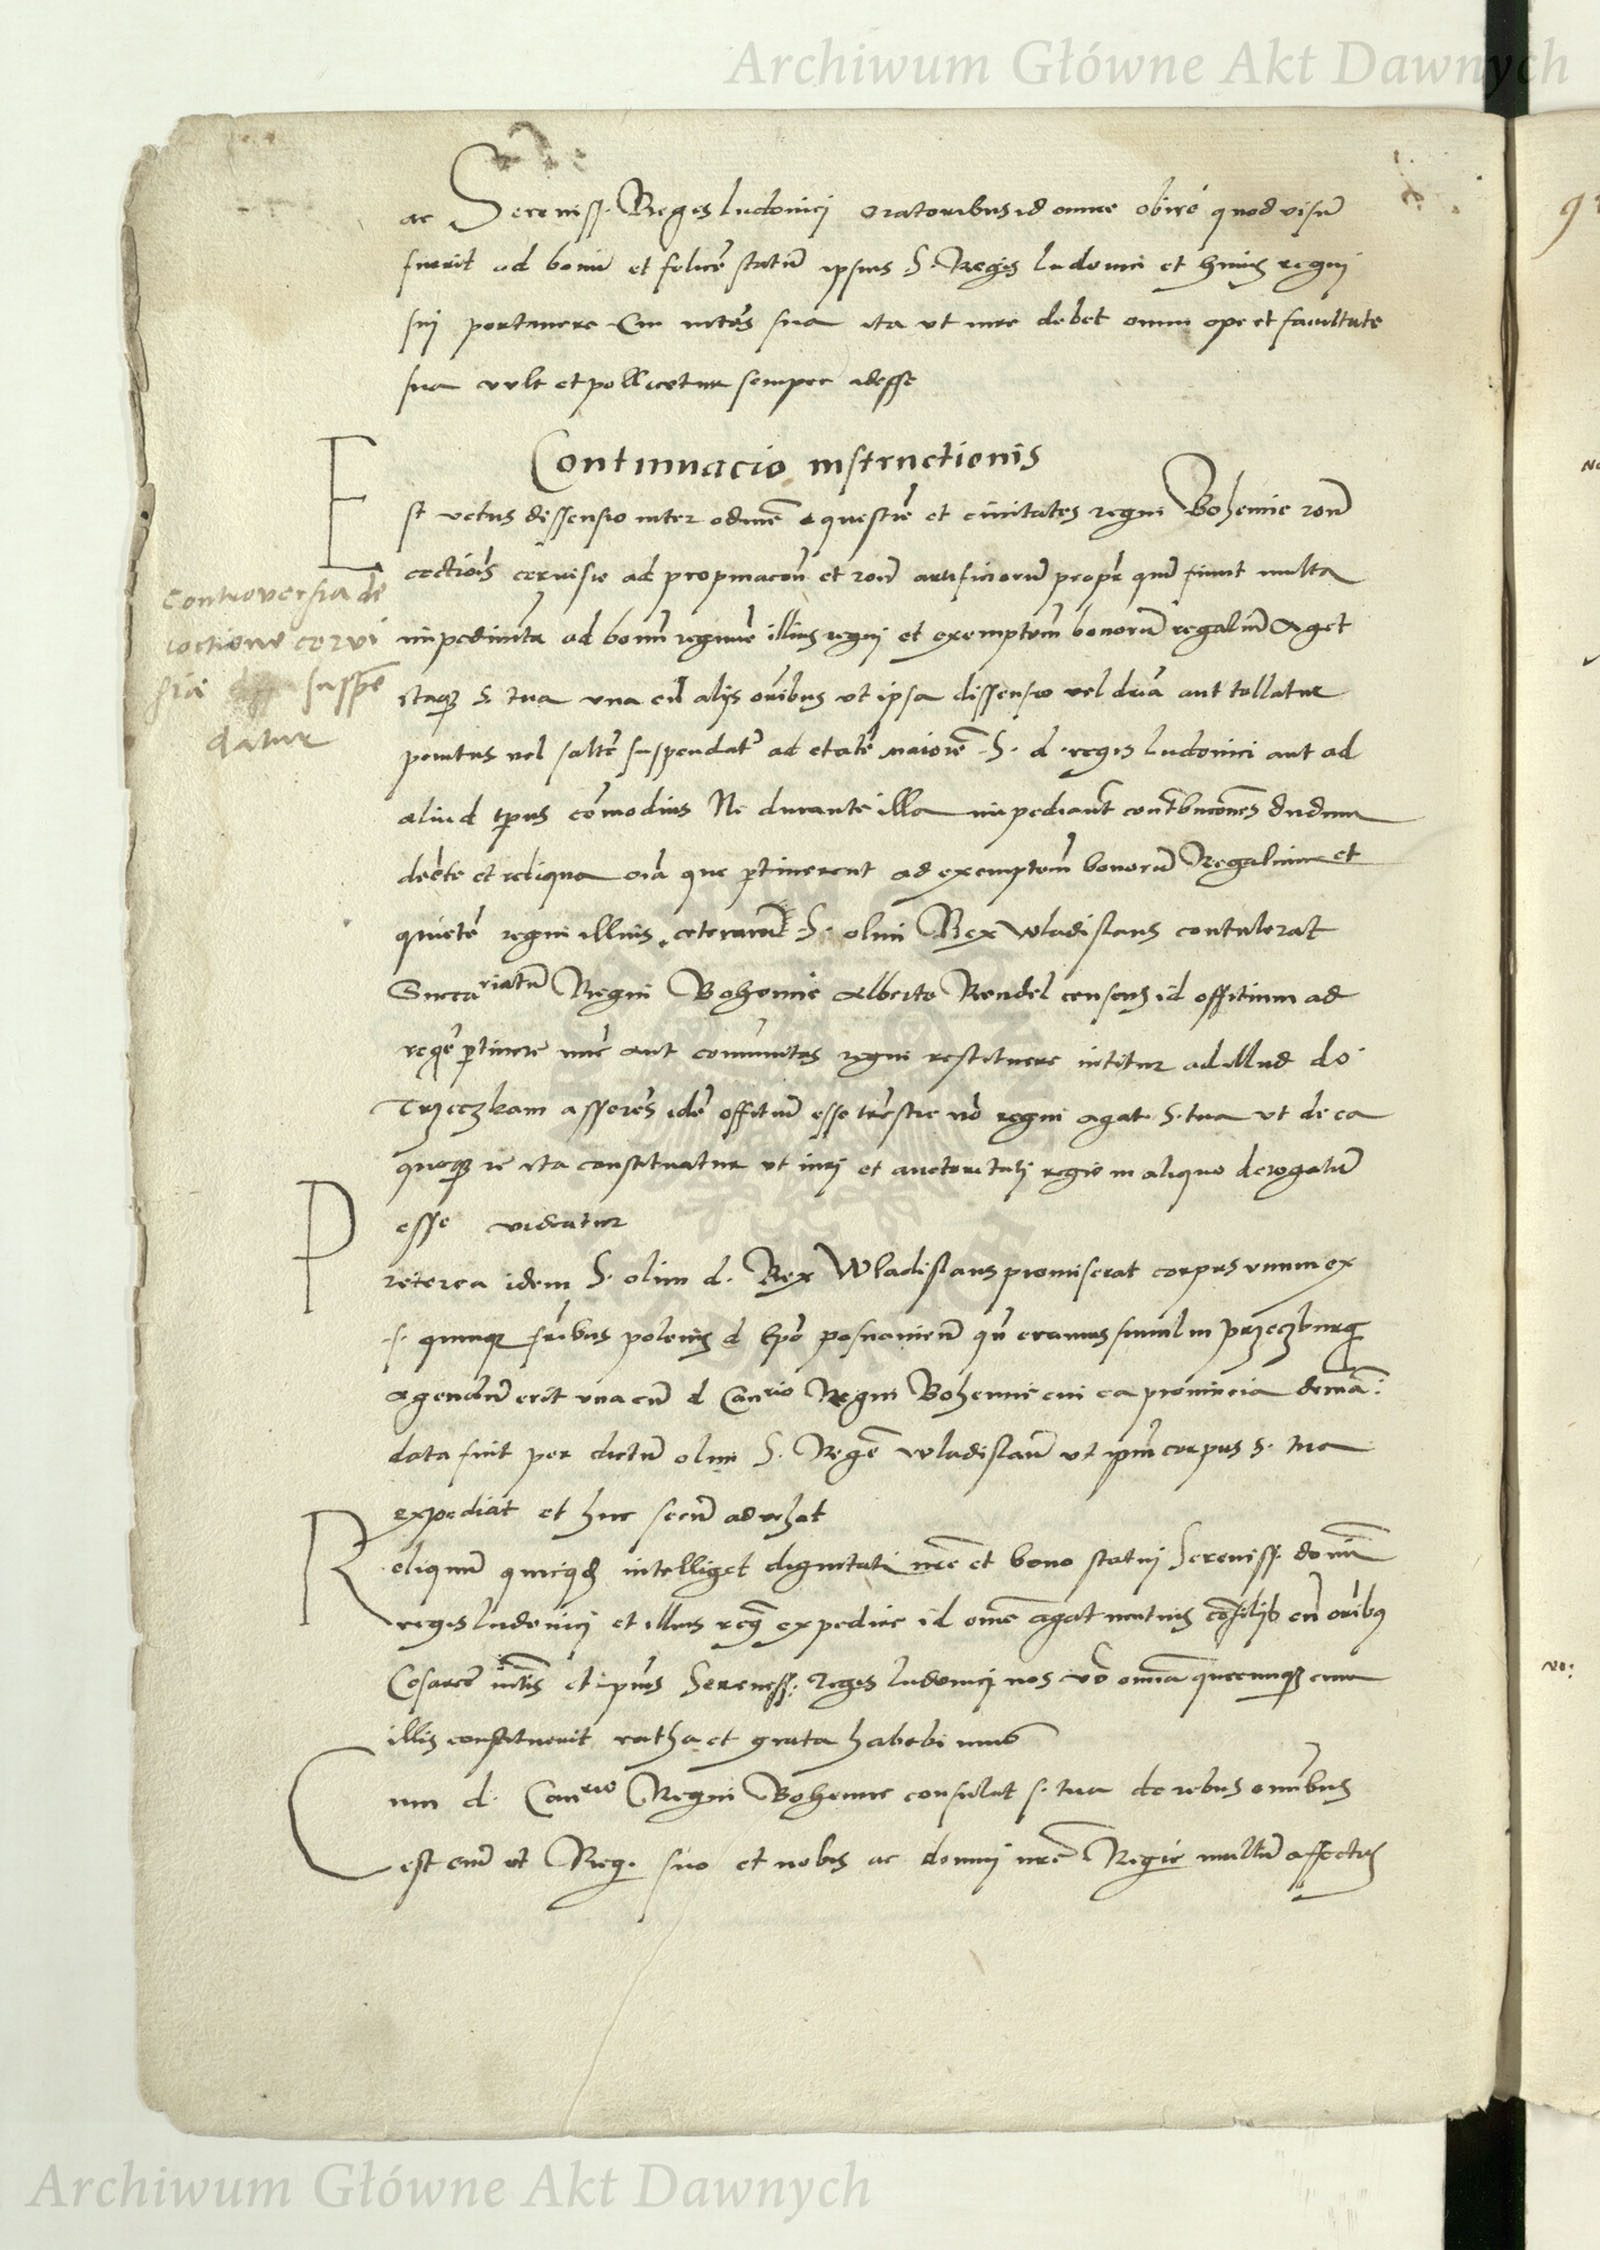 Archiwum Główne Akt Dawnych
ac Sereniss. Regis Ludovici oratoribus id omne obire quod visū
fuerit ad bonū et felicē statū ipsius S. Regis Ludovici et huius regni
sui pertinere Cui mtas sua ita ut iure debet omni ope et facultate
sua vult et pollicetur semper adesse
Continuacio instructionis
Est vetus dissensio inter ordinē equestrē et civitates regni Bohemie ronē
coctiōis cervisie ad propinacōn et ronē artificiorū propr quū fiunt multa
impedimēta ad bonū regimē illius regni et exemptōem bonorū regaliū Aget
itaq S. tua una cū alijs orībus ut ipsa dissensio vel aut tollatur
penitus vel saltē suspendatr ad etatē maiorē S. d. regis Ludovici aut ad
aliud tpus cōmodius Ne durante illa impediant contbucōnes dudum
et reliqua oīa que ptinerent ad exemptōem bonorū Regalium et
quietē regni illius. ceterum S. olim Rex Wladislaus contulerat
Succariatū Regni Bohemie Alberto Rendel censens id offitium ad
regē ptinere nūc aut comūnitas regni restituere nititur ad illud do.
Trzeczkam asserēs idē offitiū esse trēstre nō regni agat S. tua ut de ea
quoq re ita constituatur ut iuri et auctoritati regie in aliquo derogatū
esse videatur
Preterea idem S. olim d. Rex Wladislaus promiserat corpus unum ex
s. quinque frībus polonis d. Epō posnanien qū eramus simul in Przeczburg
agendū erit una cū d Canrio Regni Bohemie cui ea provincia demā:
data fuit per dictū olim S. Regē Wladislaū ut ipm corpus s. tua
expediat et huc secū advehat
Reliquum quicqd intelliget dignitati nrē et bono statui Sereniss. domī
regis Ludovici et illius regi expedire id omē agat mutuis cōsilijs cū orībus
Cesaree mtis et ipius Sereniss: regis Ludovici nos vō omīa quecunq cum
illis constituerit ratha et grata habebimus
Cum d. Canrio Regni Bohemie consulat s. tua de rebus omībus
est enī et Regi suo et nobis ac domui nrē Regie multū affectus
controversia de
coctione cervi
siae suspē
datur
Archiwum Główne Akt Dawnych